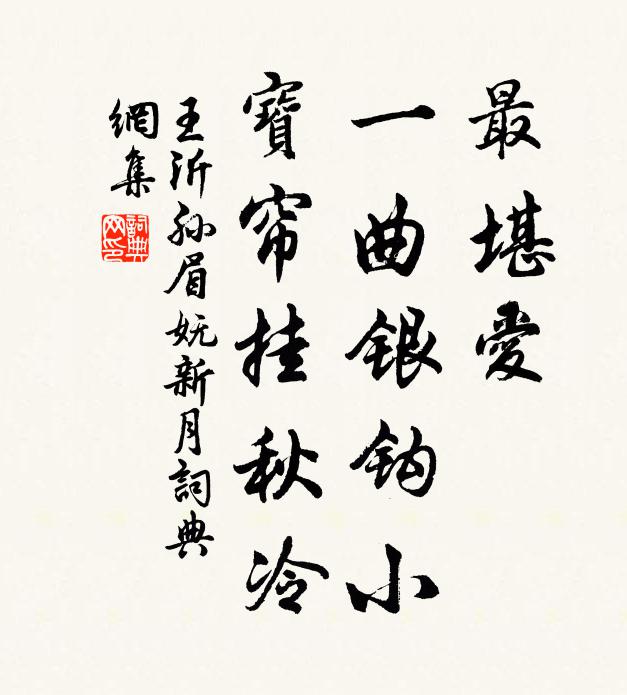 最堪愛
一曲銀鈎小
寶帘挂秋冷
王沂孫眉嫵新月詞典
網集
詞典
网印